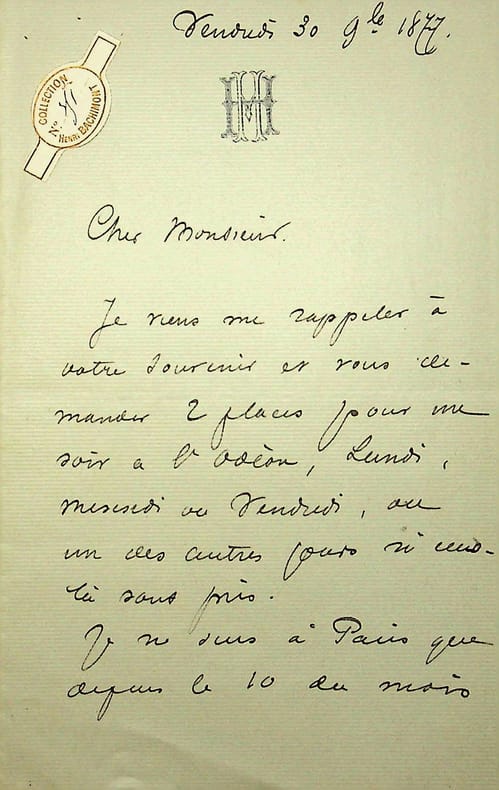 Vendredi 30 9bre 1877.
COLLECTION
No. 
HENRI BACHIMONT
HM
Cher Monsieur.
Je viens me rappeler à
votre souvenir et vous de-
mander 2 places pour un
soir a l'Odéon, Lundi,
mercredi ou Vendredi, ou
un des autres jours si ceux-
là sont pris.
Je ne suis à Paris que
depuis le 10 du mois